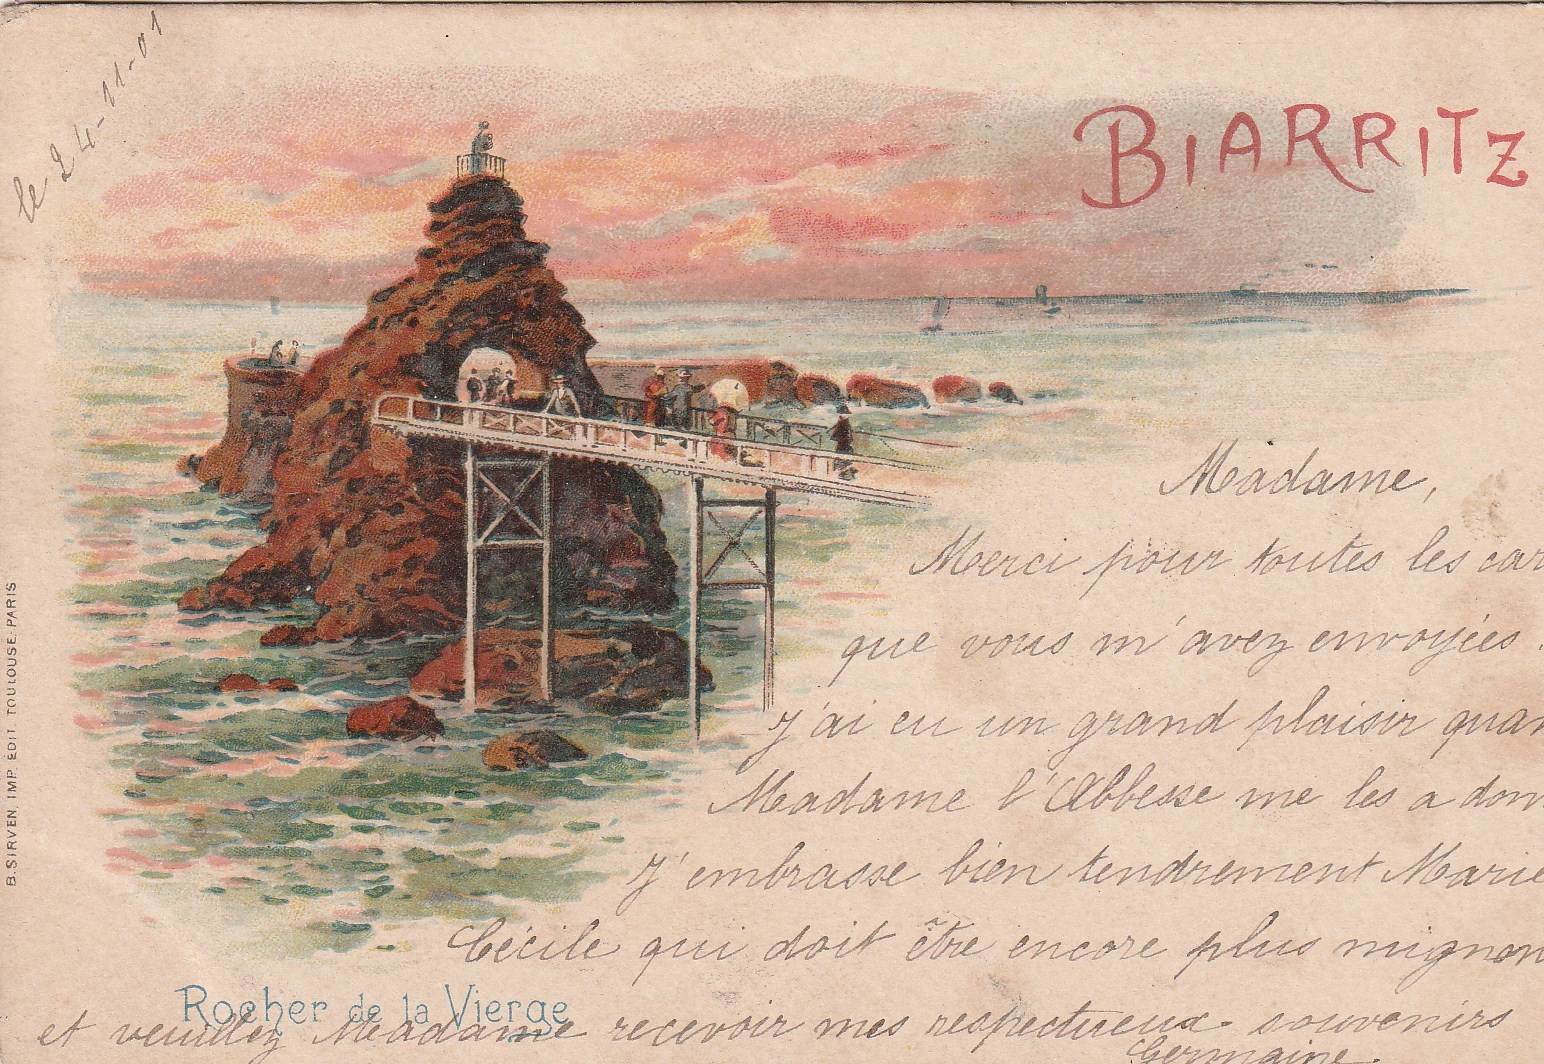 le 24-11-01
BIARRITZ
Madame,
Merci pour toutes les car
que vous m'avez envoyées.
J'ai eu un grand plaisir quan
Madame l'Abbesse me les a don
J'embrasse bien tendrement Marie
Cécile qui doit être encore plus mignon
Rocher de la Vierge
et veuillez Madame recevoir mes respectueux souvenirs
Germaine.
B. SIRVEN, IMP. EDIT. TOULOUSE. PARIS